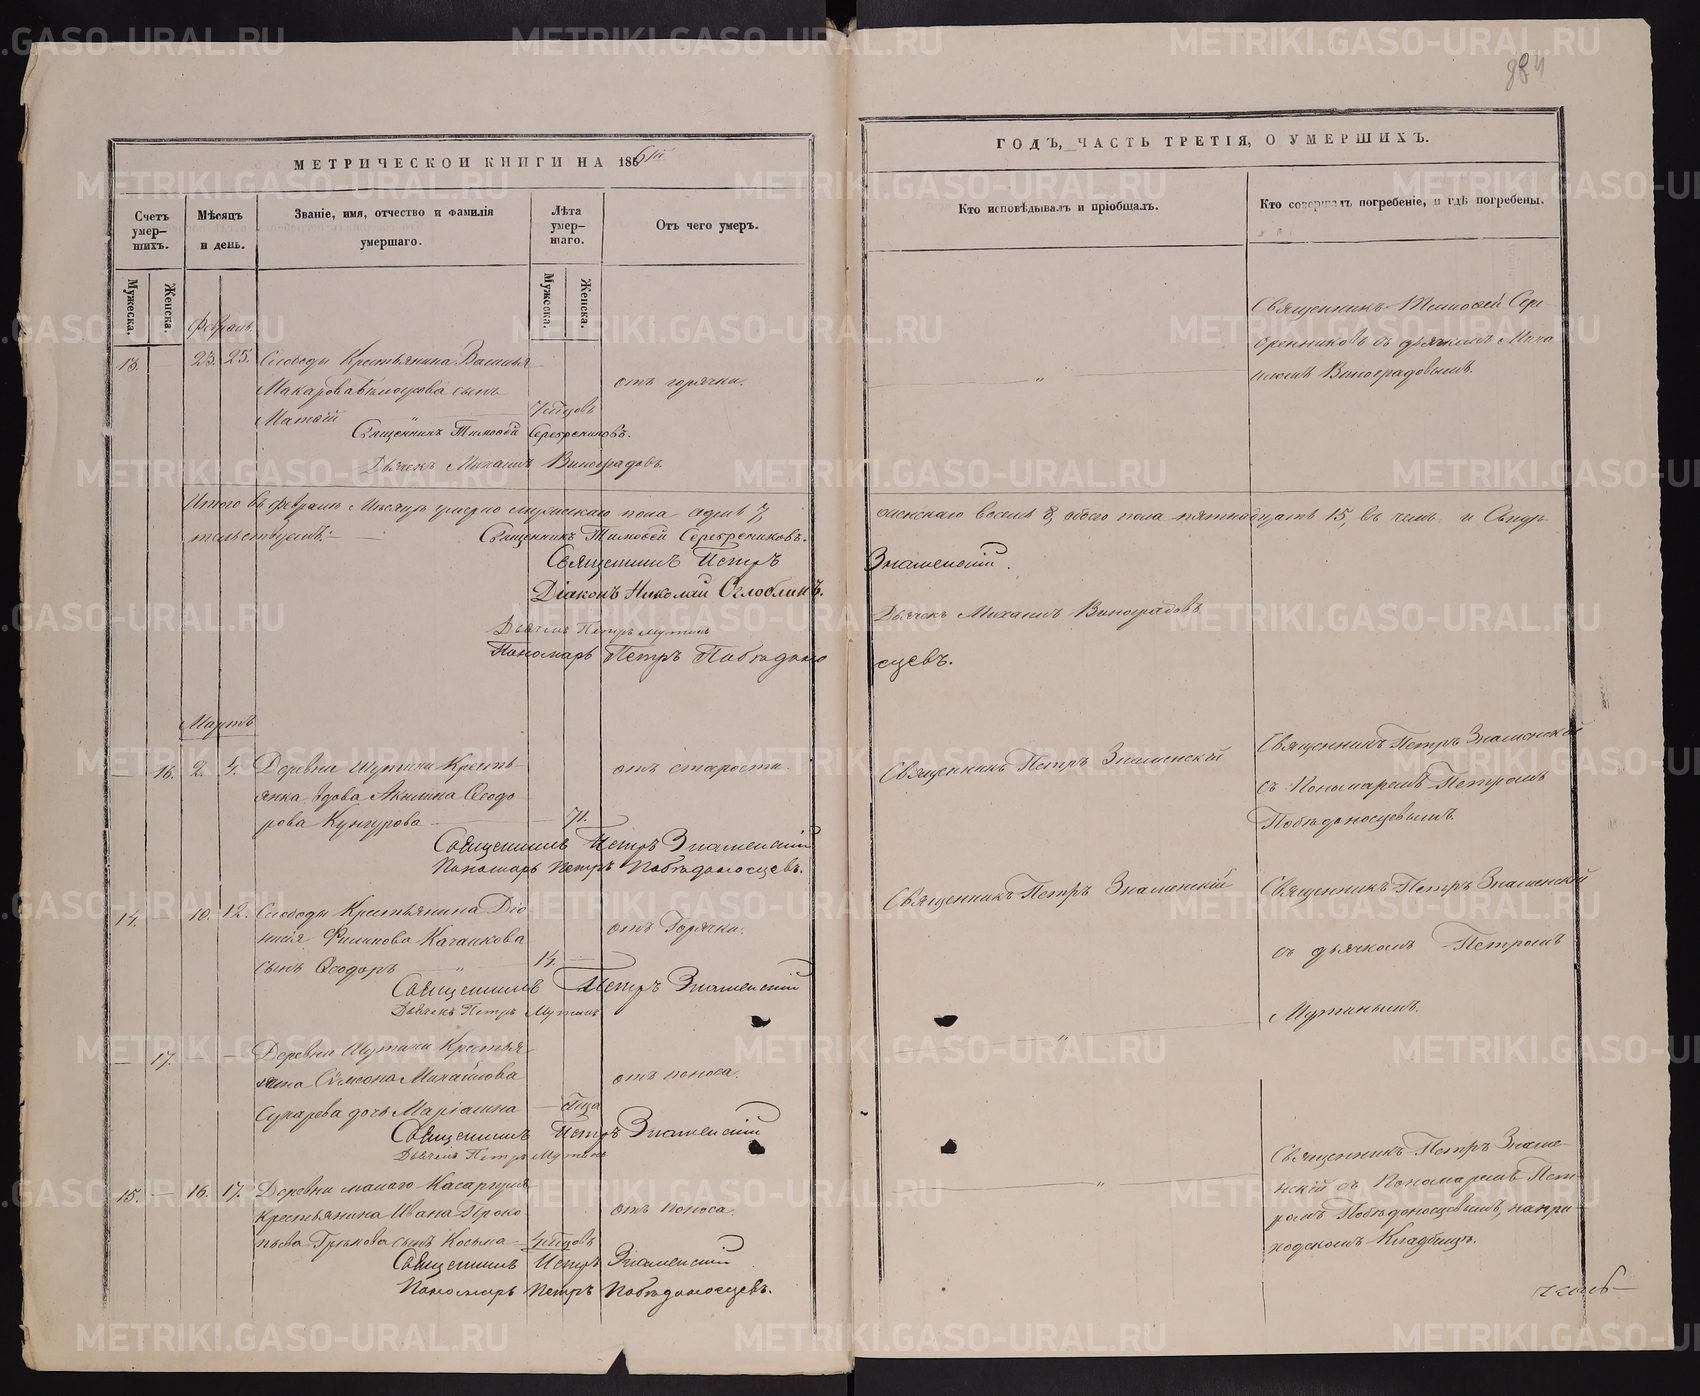 884
МЕТРИЧЕСКОЙ КНИГИ НА 186
ГОДЪ, ЧАСТЬ ТРЕТІЯ, О УМЕРШИХЪ.
Счетъ умер-шихъ.
Мужеска.
Женска.
Мѣсяцъ и день.
Званіе, имя, отчество и фамилія умершаго.
Лѣта умер-шаго.
Мужеска.
Женска.
Отъ чего умеръ.
Кто исповѣдывалъ и пріобщалъ.
Кто совершалъ погребеніе, и гдѣ погребены.
Февраль
13. — 23. 25. Слободы Крестьянина Василья
Макарова сынъ
Матѳій
отъ горячки.
Священникъ Тимоѳей Сереб-
ренниковъ съ дьячкомъ Миха
иломъ Виноградовымъ.
Священникъ Тимоѳей Серебрениковъ.
Дьячекъ Михаилъ Виноградовъ.
Итого въ Февралѣ Мѣсяцѣ умерло мужескаго пола седмь 7,
женскаго восемь 8, обоего пола пятнадцать 15, въ чемъ и Свидѣ-
тельствуемъ: —
Священникъ Тимоѳей Серебрениковъ.
Священникъ Петръ Знаменскій.
Діаконъ Николай Оглоблинъ.
Дьячекъ Михаилъ Виноградовъ
Дьячекъ Петръ Мутинъ
Пономарь Петръ Побѣдоно
сцевъ.
Мартъ
— 16. 2. 4. Деревни Шутихи Кресть-
янка вдова Акилина Ѳеодо
рова Кунгурова — 71.
отъ старости.
Священникъ Петръ Знаменскій
Священникъ Петръ Знаменской
съ Пономаремъ Петромъ
Побѣдоносцевымъ.
Священникъ Петръ Знаменскій
Пономарь Петръ Побѣдоносцевъ.
14. 10. 12. Слободы Крестьянина Діо
нисія Филипова Качалкова
сынъ Ѳеодоръ — 14. —
отъ Горячки.
Священникъ Петръ Знаменскій
Священникъ Петръ Знаменской
съ дьячкомъ Петромъ
Мутинымъ.
Священникъ Петръ Знаменскій
Дьячекъ Петръ Мутинъ
— 17. — — Деревни Шутихи Крестья-
нина Сѵмеона Михайлова
Сухарева дочь Маріамна
отъ поноса.
Священникъ Петръ Знаменскій
Дьячекъ Петръ Мутинъ
15. — 16. 17. Деревни малаго Касаргуля
крестьянина Ивана Проко
пьева сынъ Косьма
отъ поноса.
Священникъ Петръ Знаме-
нскій съ Пономаремъ Пет-
ромъ Побѣдоносцевымъ, на при-
ходскомъ Кладбищѣ.
Священникъ Петръ Знаменскій
Пономарь Петръ Побѣдоносцевъ.
METRIKI.GASO-URAL.RU